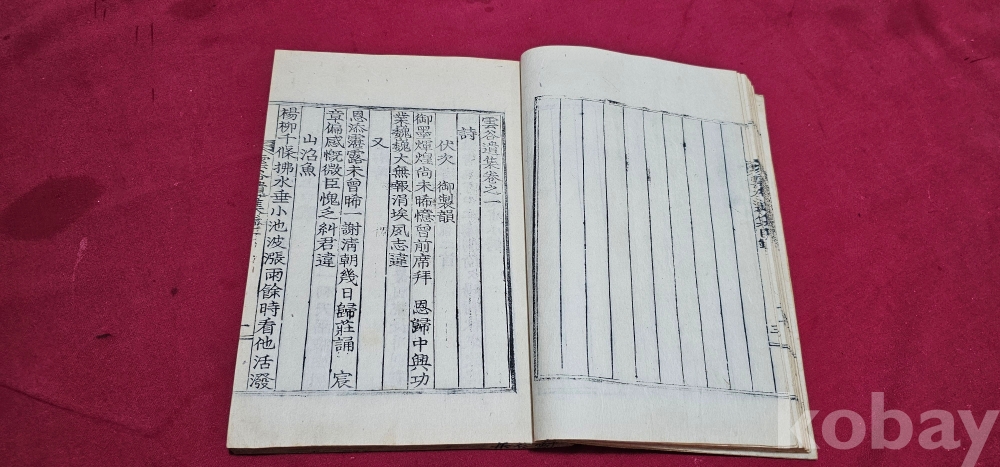 雲谷遺集卷之一
詩
伏次 御製韻
御墨輝煌尚未晞憶曾前席拜 恩歸中興功
業巍巍大無報涓埃夙志違
又
恩添靈露未曾晞一謝淸朝幾日歸莊誦 宸
章偏感慨微臣愧乏糾君違
山沼魚
楊柳千條拂水垂小池波漲雨餘時看他活潑
雲谷遺集卷一
一
三
kobay